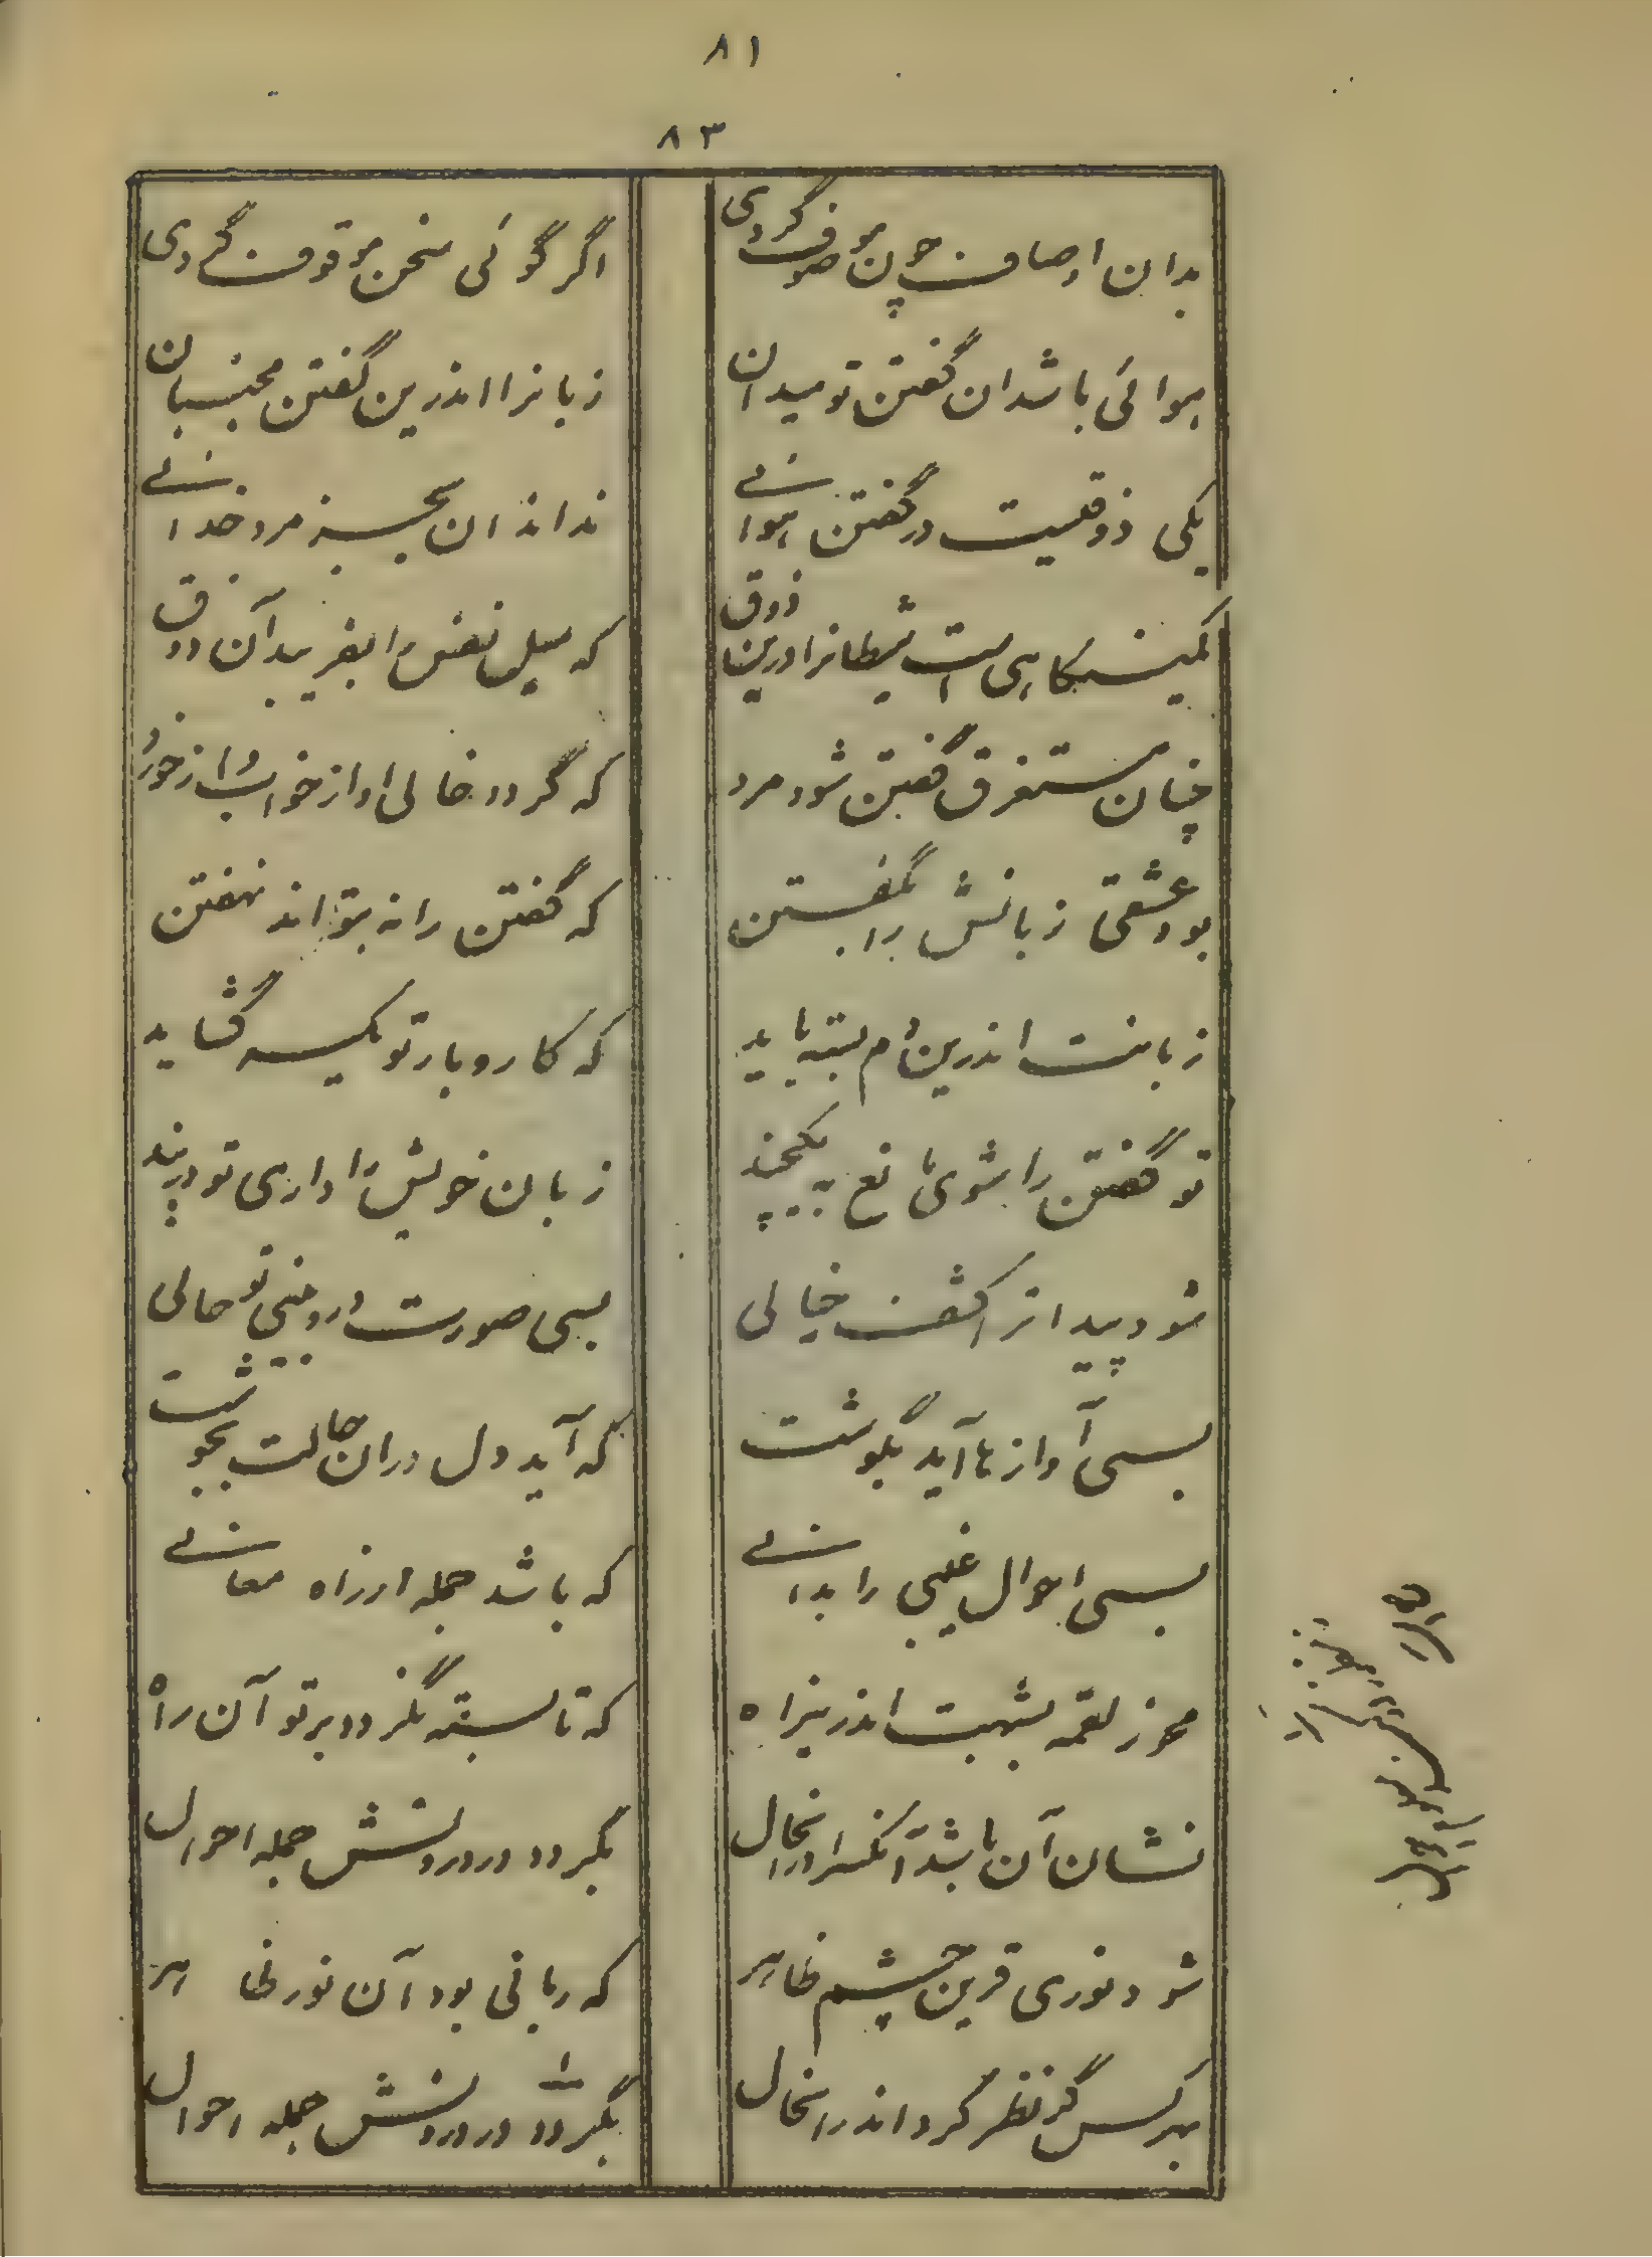 ۸۱
۸۳
بدان اوصاف چون موصوف گردی
اگر گوئی سخن موقوف گردی
هوائی باشد ان گفتن تو میدان
زبانرا اندرین گفتن مجنبان
یکی ذوقیست در گفتن هوائے
نداند ان بجز مرد خدائے
کمینگاهی است شیطانرا درین ذوق
که میل نفس را بفریبد آن ذوق
چنان مستغرق گفتن شود مرد
که گردد خالی او از خواب و از خورد
بود عشقی زبانش را بگفتن
که گفتن را نه بتواند نهفتن
زبانت اندرین دم بسته باید
که کار و بار تو یکسر گشاید
تو گفتن را شوی مانع یکچند
زبان خویش را داری تو در بند
شود پیدا ترا کشف خیالی
بسی صورت درو بینی تو حالی
بسی آوازها آید بگوشت
که آید دل دران حالت بجوشت
بسی احوال غیبی را بدانے
که باشد جمله از راه معانے
مخور لقمه بشبهت اندرینراه
که تا بسته نگردد بر تو آن راه
نشان آن باشد آنکس را درانحال
بگردد در درونش جمله احوال
شود نوری قرین چشم ظاهر
که ربانی بود آن نور ظاهر
بهر کس گر نظر کرد اندرانحال
بگردد در درونش جمله احوال